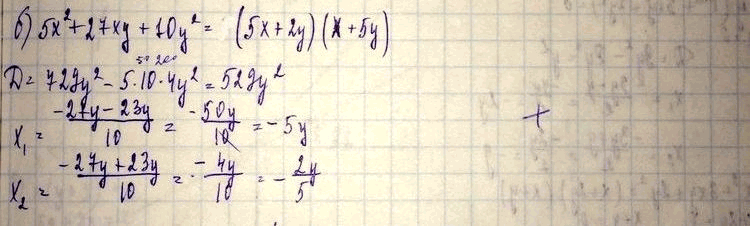 б) 5x² + 27xy + 10y² = (5x + 2y)(x + 5y)
50 200
D = 729y² - 5·10·4y² = 529y²
x₁ = (-27y - 23y)/10 = -50y/10 = -5y
+
x₂ = (-27y + 23y)/10 = -4y/10 = -2y/5